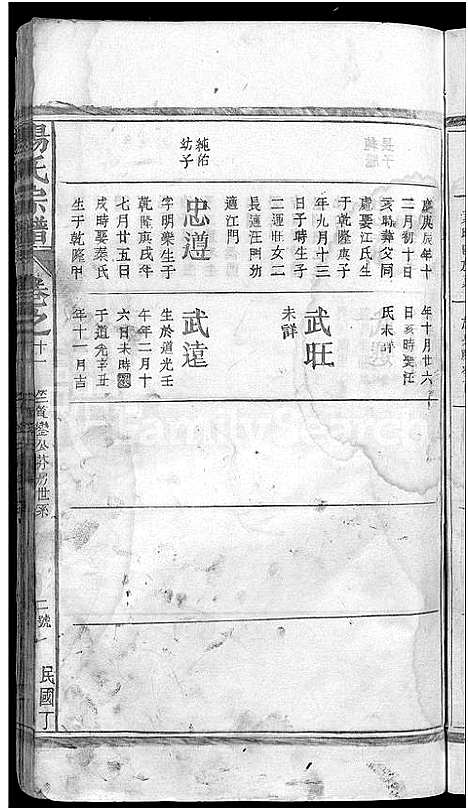 慶庚辰年十
二月初十日
亥時葬父同
處娶江氏生
于乾隆庚子
年九月十三
日子時生子
二運旺女二
長適汪門幼
適江門
純治
幼子
忠遵
字明樂生于
乾隆庚戌年
七月廿五日
戌時娶蔡氏
生于乾隆甲
年十月廿六
日亥時娶汪
氏未詳
武旺
未詳
武遠
生於道光壬
午年二月十
六日未時
于道光辛丑
年十一月吉
楊氏宗譜
卷之十一
二號
民國丁
FamilySearch